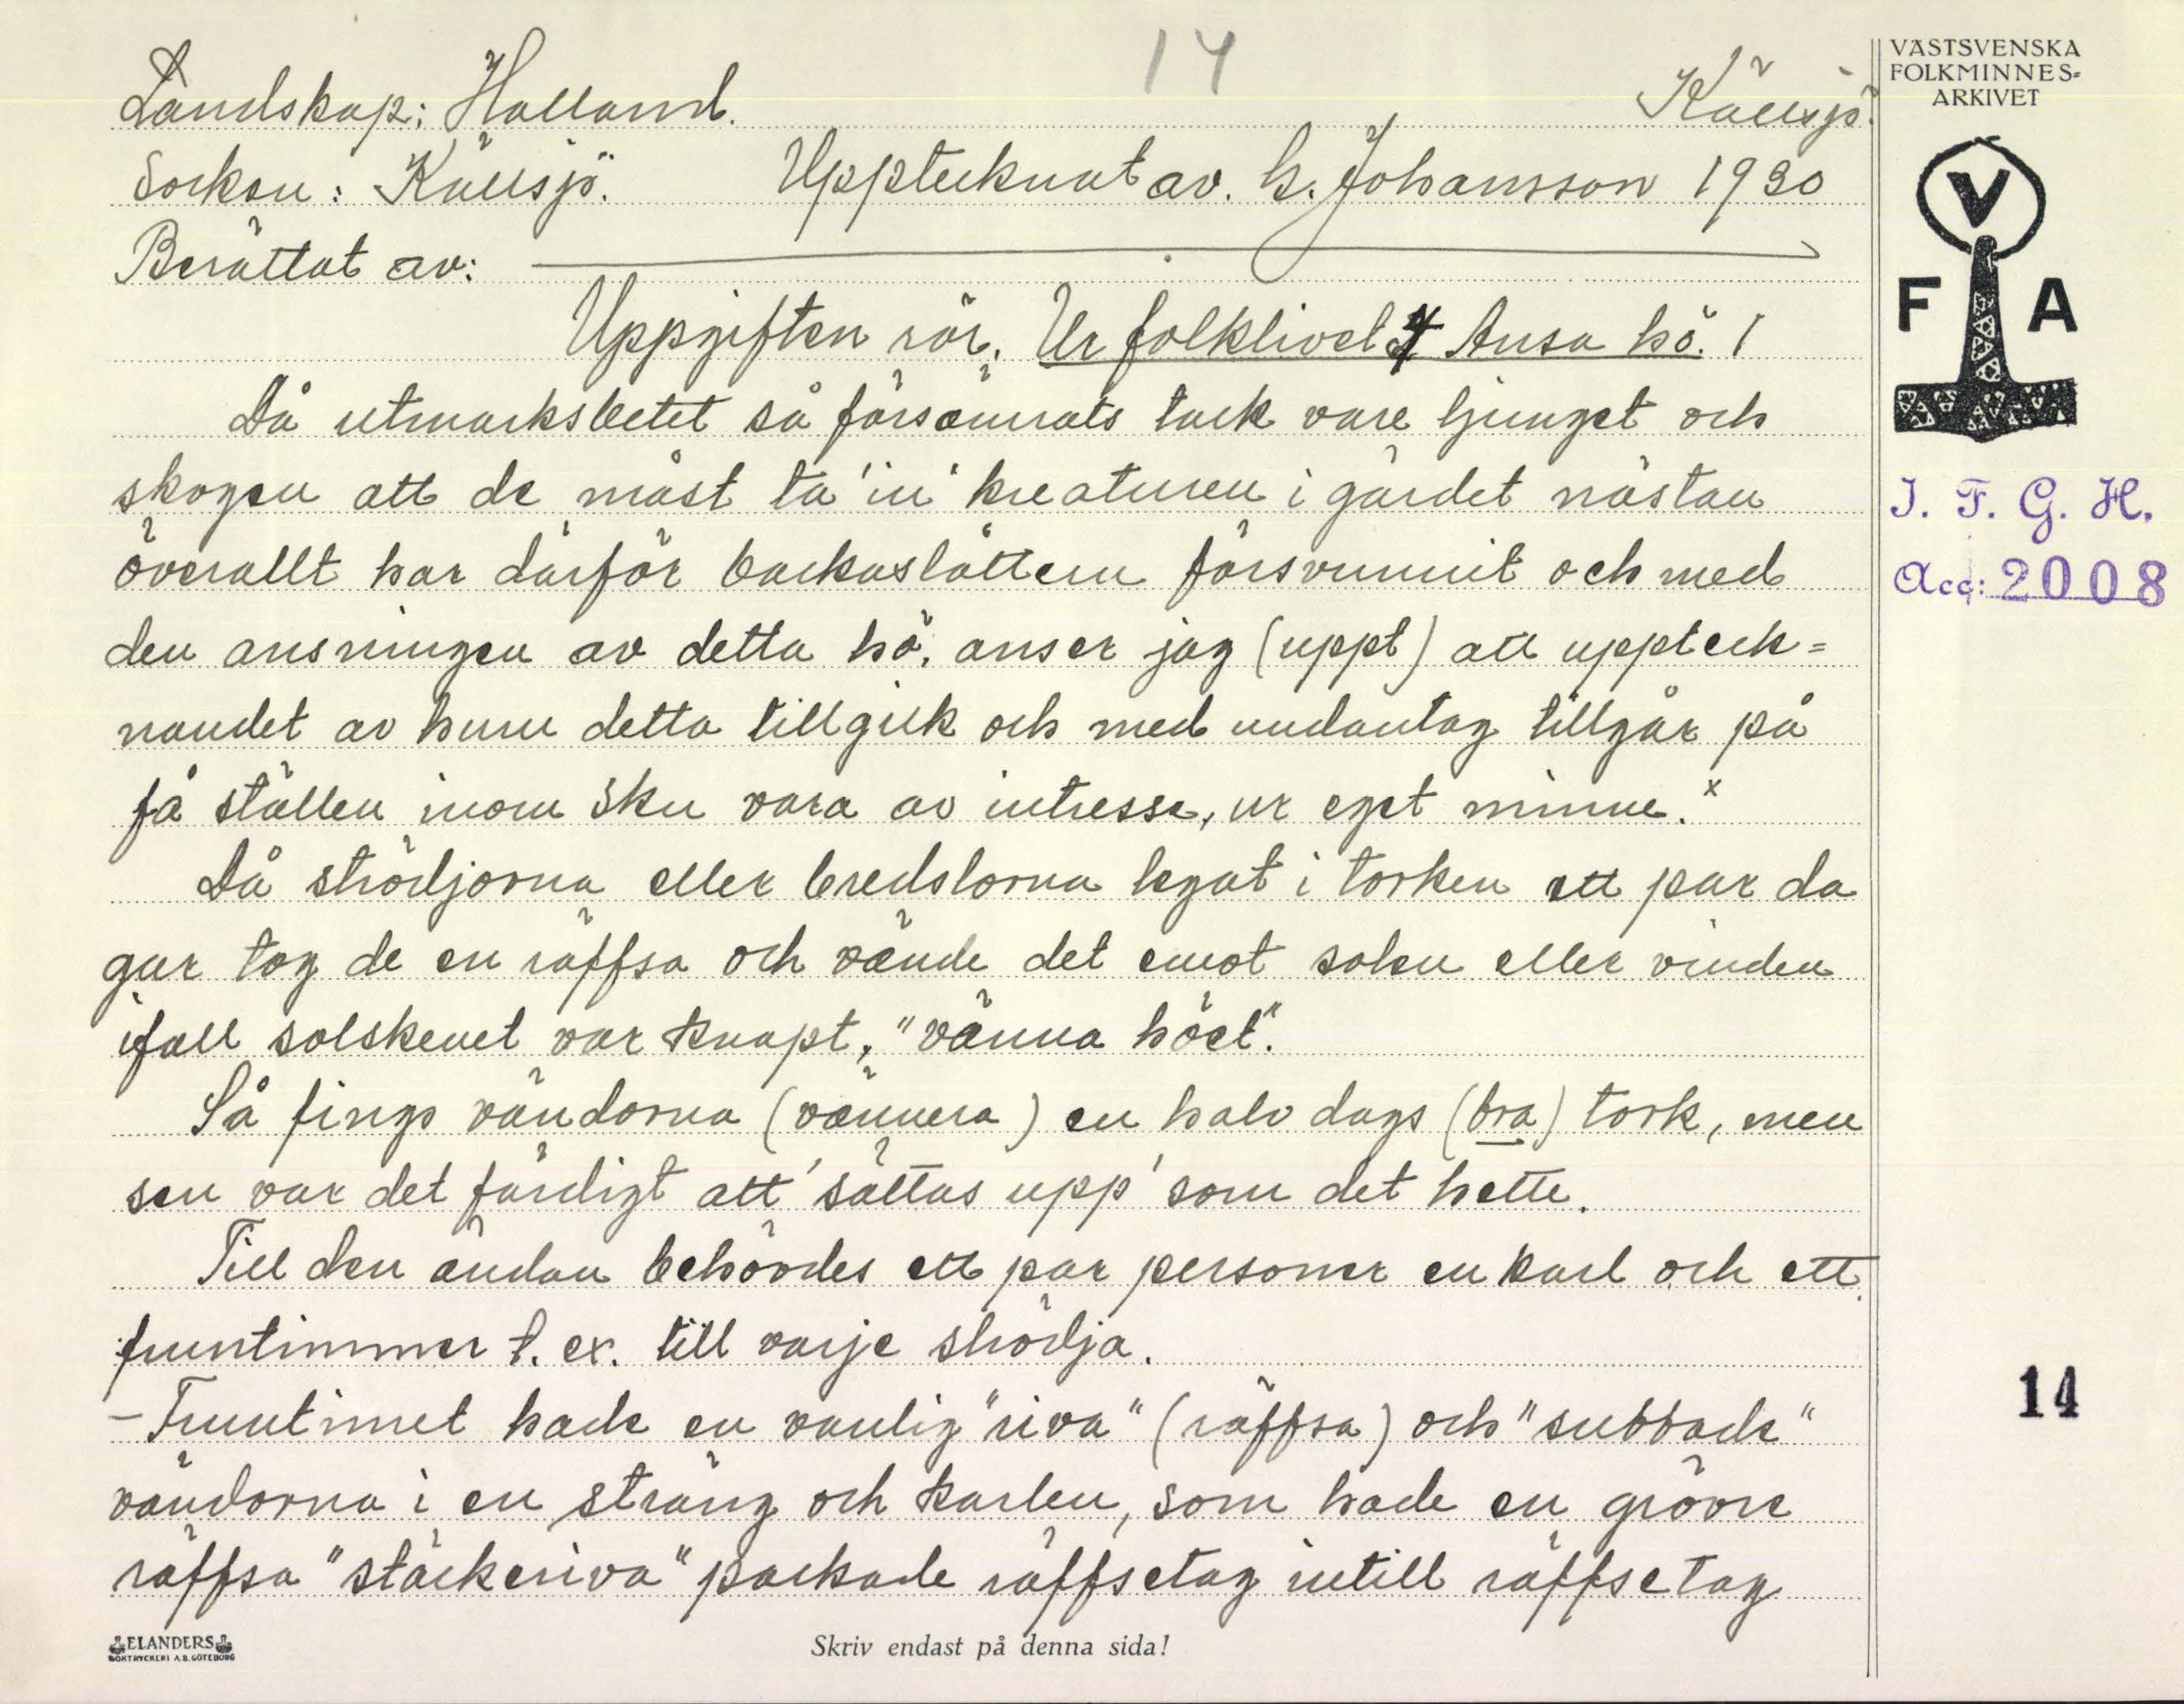 14
Landskap: Halland. Källsjö.
Socken: Källsjö. Upptecknat av. L. Johansson 1930
Berättat av:
Uppgiften rör. Ur folklivet Ansa hö. 1
Då utmarksbetet så försämrats tack vare ljunget och
skogen att de måst ta 'in' kreaturen i gärdet nästan
överallt har därför backaslåttern försvunnit och med
den ansningen av detta hö. anser jag (uppt) att uppteck=
nandet av huru detta tillgick och med undantag tillgår på
få ställen inom sku vara av intresse, ur eget minne. x
Då strödjorna eller bredslorna legat i torken ett par da
gar tog de en räffsa och vände det emot solen eller vinden
ifall solskenet var knapt, "vänna höet".
Så fings vändorna (vännera) en halv dags (bra) tork, men
sen var det färdigt att 'sättas upp' som det hette.
Till den ändan behövdes ett par personer en karl och ett
fruntimmer t. ex. till varje strödja.
– Fruntimet hade en vanlig "riva" (räffsa) och "subbade"
vändorna i en sträng och karlen, som hade en grövre
räffsa "stäckeriva" packade räffsetag intill räffsetag
ELANDERS
BOKTRYCKERI A.B. GÖTEBORG
Skriv endast på denna sida!
VÄSTSVENSKA
FOLKMINNES=
ARKIVET
V
F A
I. F. G. H.
Acc: 2008
14